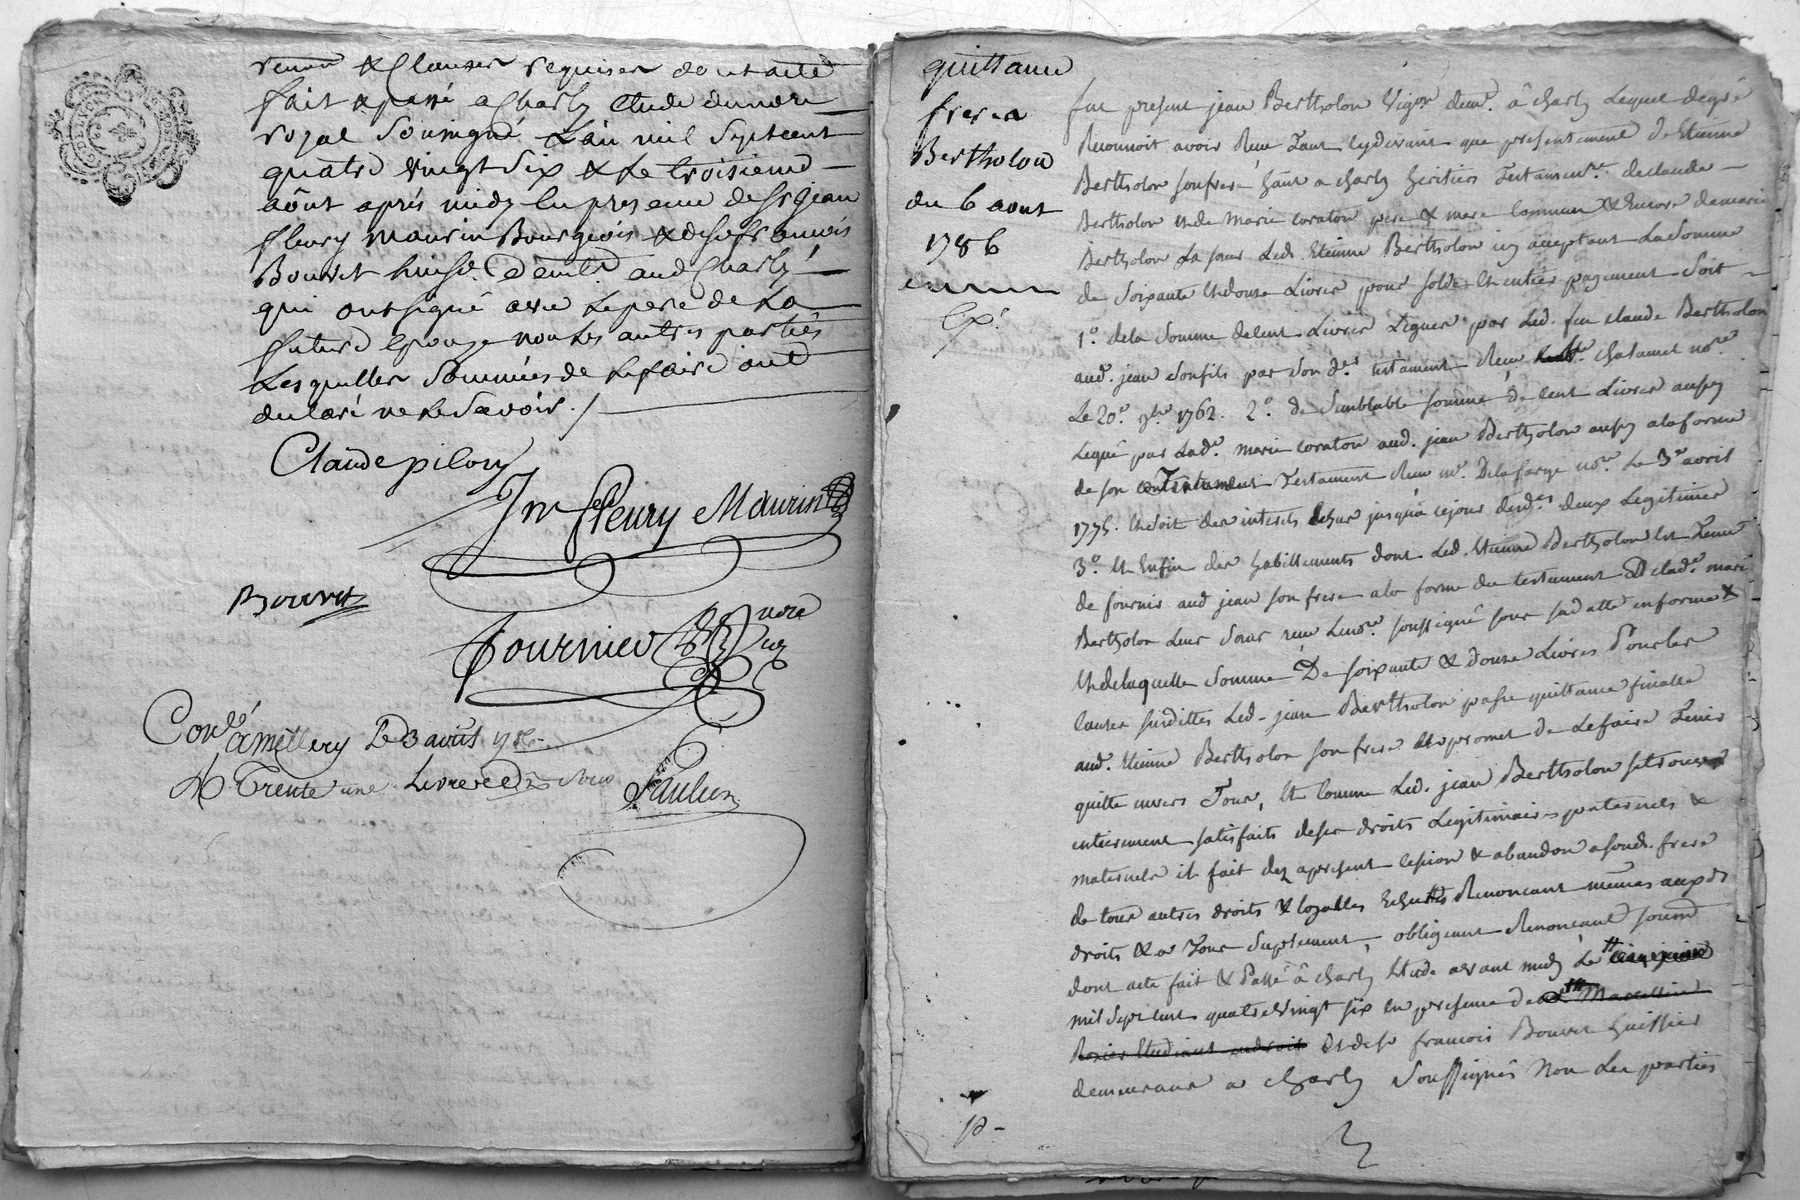 renon & Clauses requises dont acte
fait & passé a Charly Etude du nore
royal Soussigné L'an mil Septcent
quatre vingt Six & Le troisieme
aôut après midy En presence de Sr Jean
fleury Maurin Bourgeois & de Sr francois
Bouvet huissr demts aud Charly
qui ont signé avec Le pere de La
future Epouze non Les autres parties
Lesquelles Sommées de Le faire ont
declaré ne Le Savoir ./
Claude pilory
Jn fleury Maurin
Bouvet
Fournier nore
Conlé a millery Le 3 aout 1786
Trente une Livre Sous
Paulin
quittance
freres
Bertholon
du 6 aout
1786
Exp.
fut present jean Bertholon Vigon demt. â charly Lequel de gré
Reconnoit avoir Receu Tant cydevant que presentement d'Etienne
Bertholon son frere hânt a charly heritier Testamentre. de claude
Bertholon et de marie coraton pere & mere commun & Encore de marie
Bertholon La sœur Led. Etienne Bertholon icy acceptant La Somme
de Soixante et douze Livres pour solde et entier payement Soit
1º. de la Somme de cent Livres Leguée par Led. feu claude Bertholon
aud. jean son fils par son der testament Receu chatanet nore.
Le 20e. 9bre 1762. 2º. de Semblable somme de cent Livres aussy
Leguée par Lade. marie coraton aud. jean Bertholon aussy a la forme
de son Testament Receu me. Delafarge nore. Le 3e avril
1775. et Soit des interets Echus jusqu'a ce jour desds. deux Legitimes
3º. Et Enfin des habillements dont Led. Etienne Bertholon Est Tenu
de fournir aud jean son frere a la forme du testament De lade. marie
Bertholon Leur Sœur receu Le nore. soussigné sous sa datte en forme &
Et de laquelle Somme De Soixante & douze Livres Pour les
causes susdittes Led. jean Bertholon passe quittance finalle
aud. Etienne Bertholon son frere et promet de Le faire Tenir
quitte envers Tous, Et comme Led. jean Bertholon se trouve
entierement satisfaits de ses droits Legitimaires paternels &
maternels il fait dez apresent cession & abandon a sond. frere
de tous autres droits & loyalles Echuttes Renoncant mêmes auxds
droits & a Tous Suplement, obligeant Renoncant soumt
dont acte fait & Passé â charly Etude avant midy Le
mil Sept cent quatre vingt six En presence de Sr Marcellin
Rozier Etudiant en droit Et de Sr francois Bouvet huissier
demeurant a charly Soussignés Non Les parties